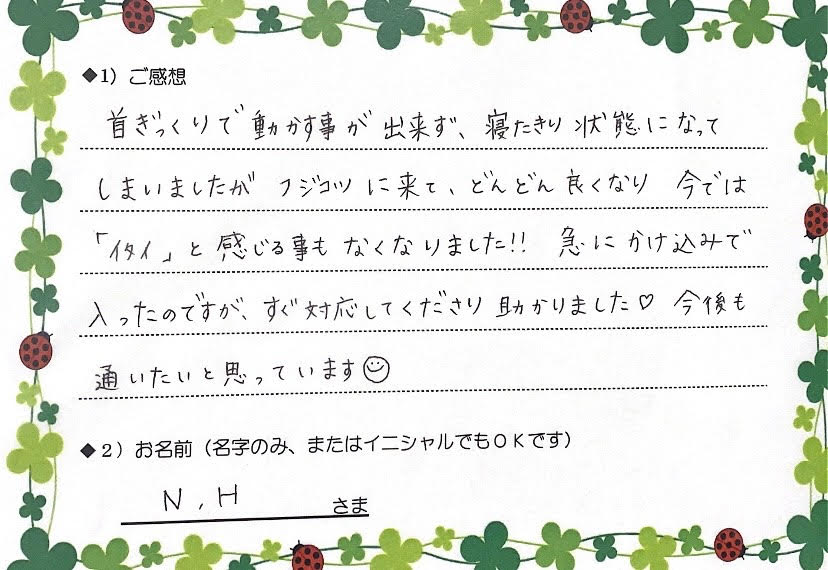 ◆1）ご感想
首ぎっくりで動かす事が出来ず、寝たきり状態になって
しまいましたが フジコツに来て、どんどん良くなり 今では
「イタイ」と感じる事もなくなりました!! 急にかけ込みで
入ったのですが、すぐ対応してくださり助かりました♡ 今後も
通いたいと思っています☺
◆2）お名前（名字のみ、またはイニシャルでもＯＫです）
N,H さま